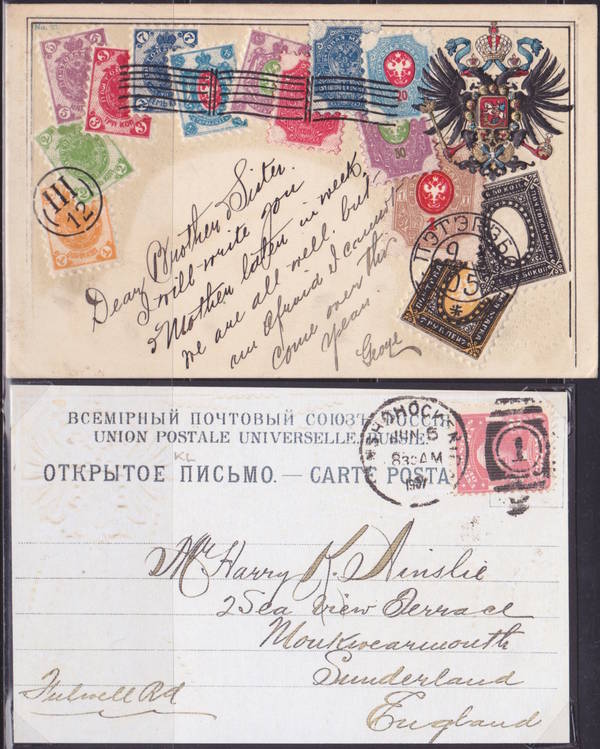 No. 37
ПЭТЭРЗБ
9
05
III
12
Dear Brother & Sister.
I will write you
& Mother later in week.
we are all well. but
um Afraid I cannot
come over this
year.
George
ВСЕМІРНЫЙ ПОЧТОВЫЙ СОЮЗЪ. РОССІЯ
UNION POSTALE UNIVERSELLE. RUSSIE.
KL
ОТКРЫТОЕ ПИСЬМО. — CARTE POSTA
JUN 5
830 AM
1907
1
Mr Harry K. Ainslie
2 Sea View Terrace
Monkwearmouth
Sunderland
England
Fulwell Rd